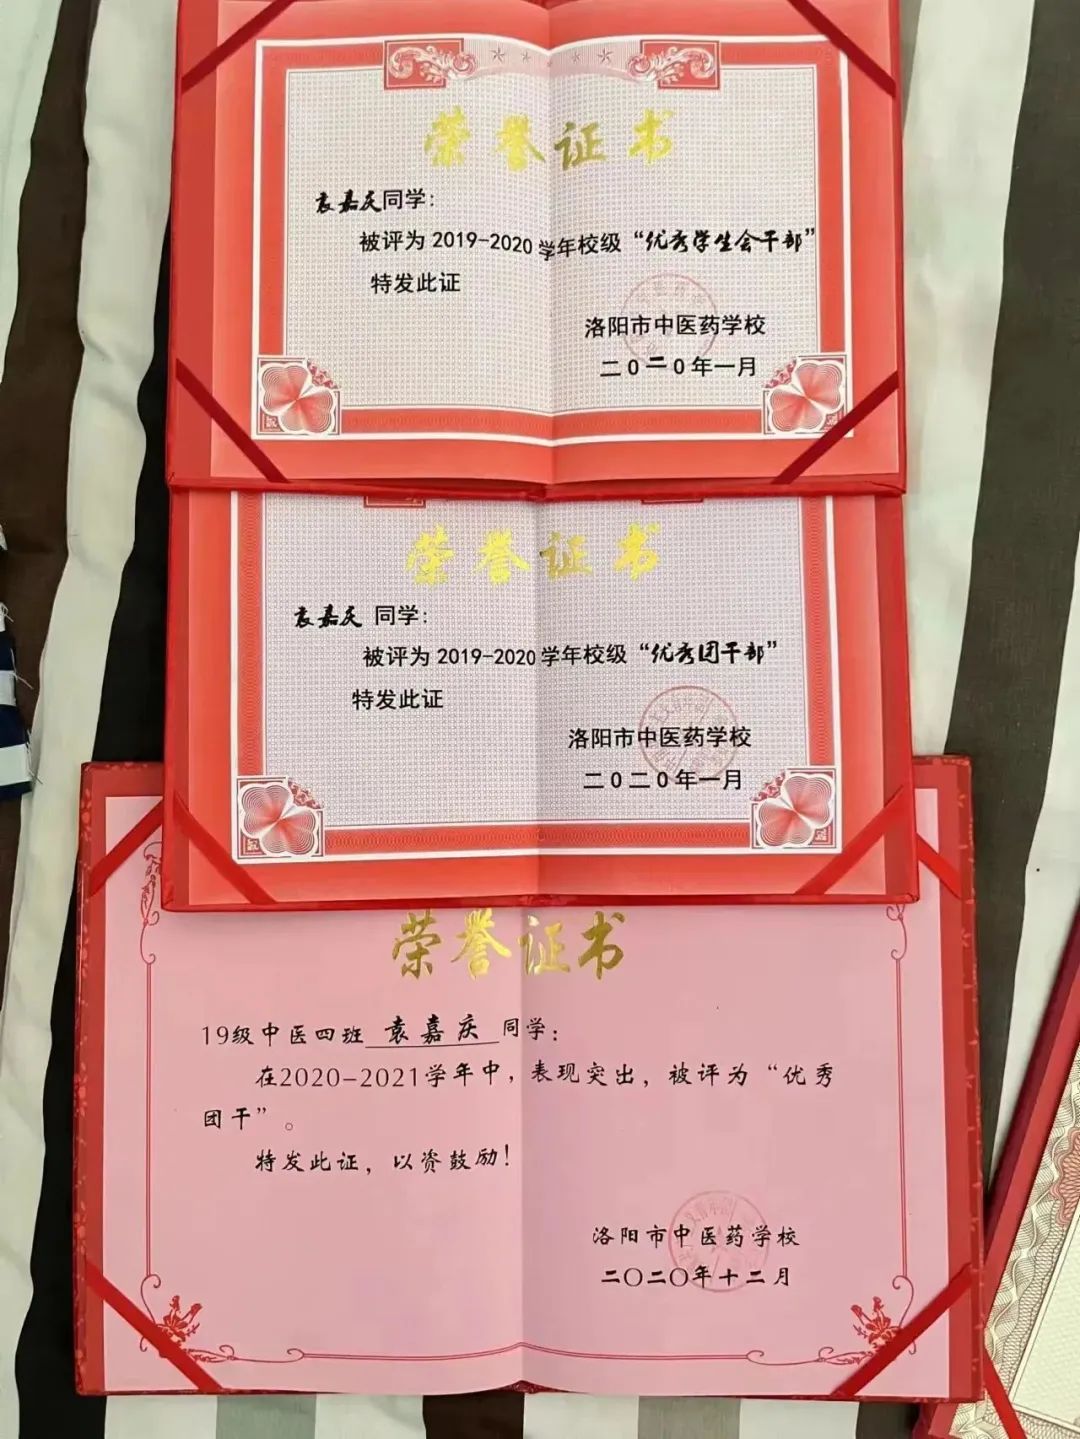 荣誉证书
袁嘉庆同学：
被评为 2019-2020 学年校级 “优秀学生会干部”
特发此证
洛阳市中医药学校
二0二0年一月
荣誉证书
袁嘉庆 同学：
被评为 2019-2020 学年校级 “优秀团干部”
特发此证
洛阳市中医药学校
二0二0年一月
荣誉证书
19级中医四班 袁嘉庆 同学：
在2020-2021学年中，表现突出，被评为“优秀
团干”。
特发此证，以资鼓励！
洛阳市中医药学校
二〇二〇年十二月